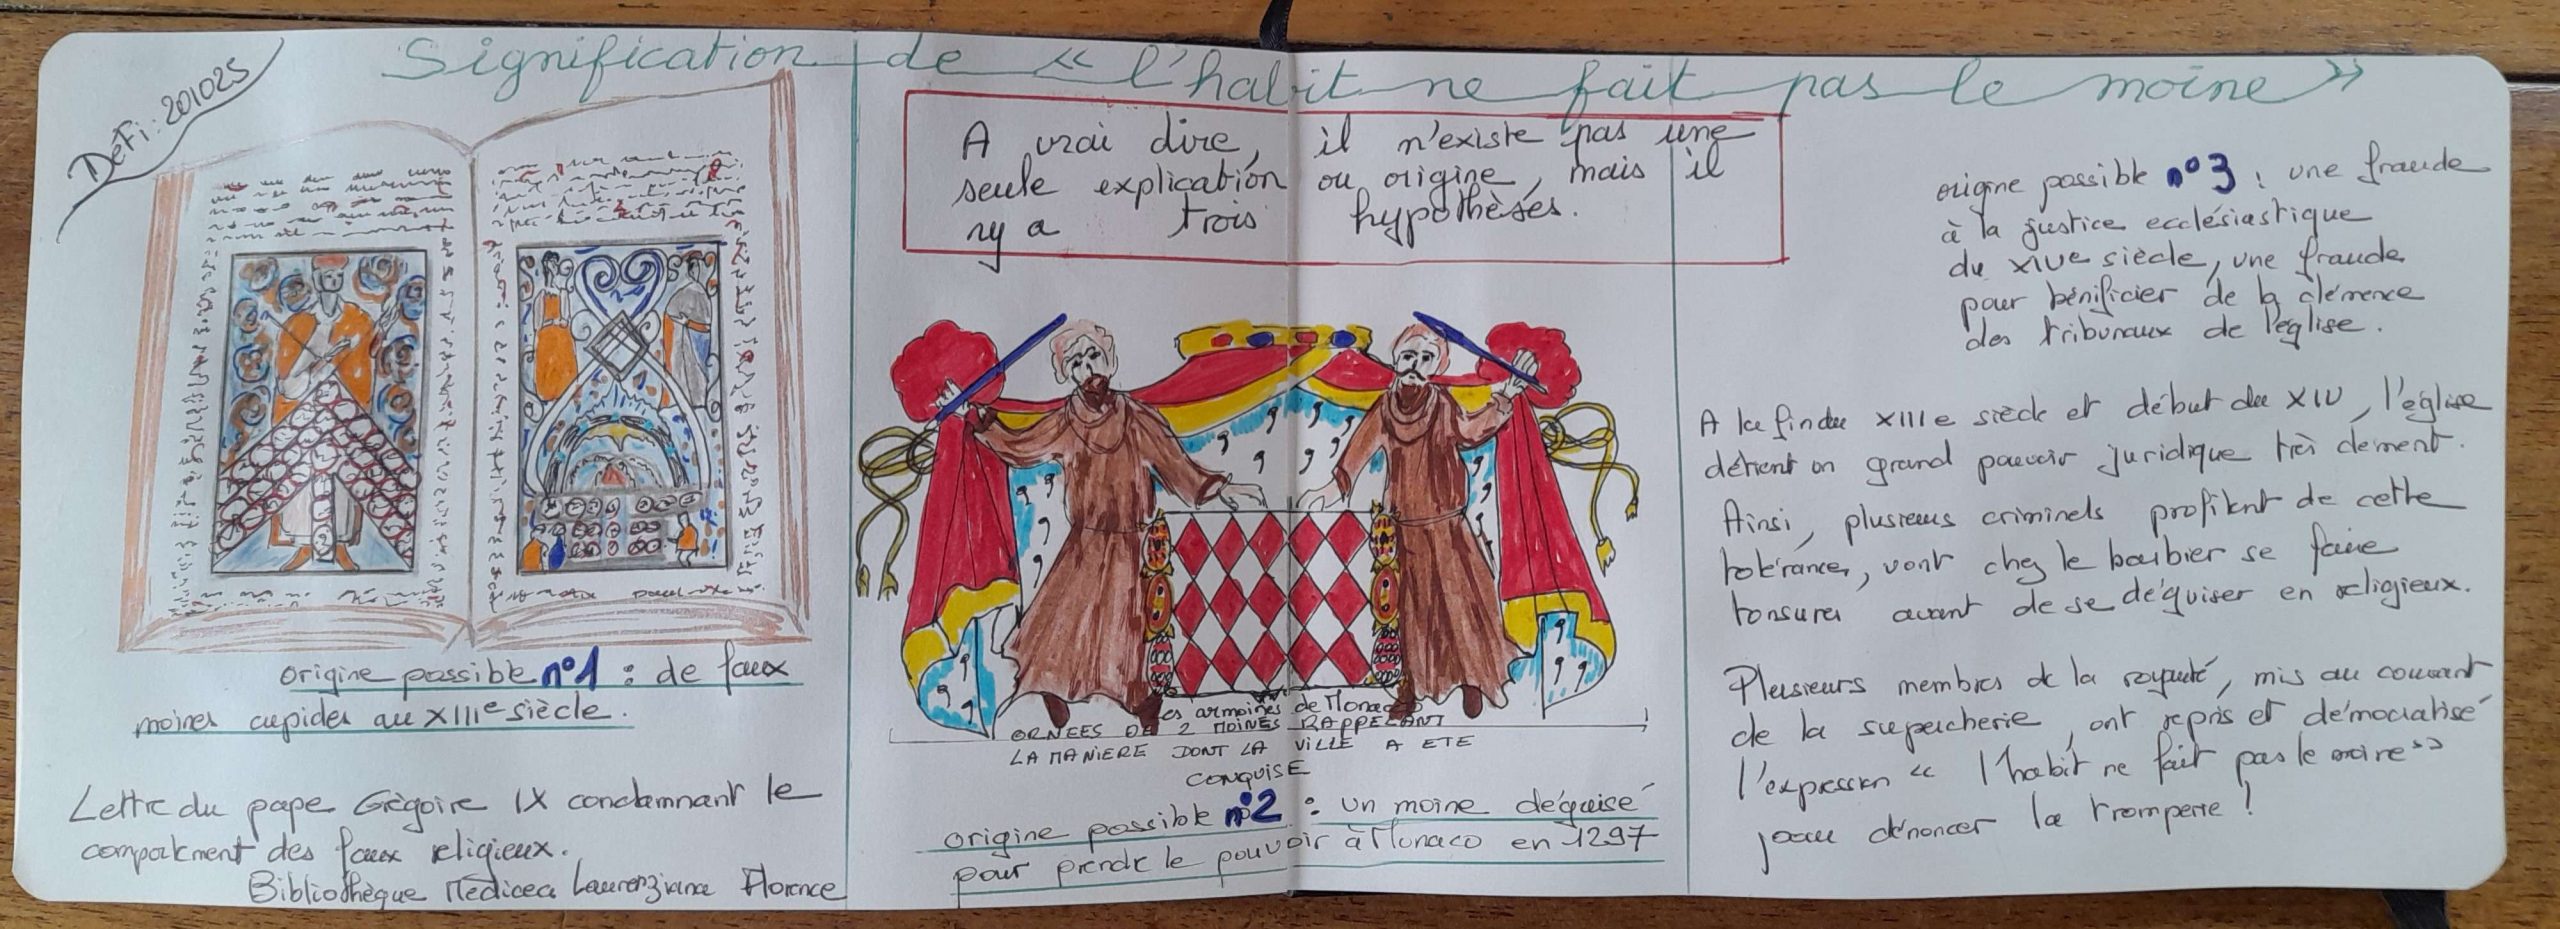 DéFi : 201025
Signification de « l'habit ne fait pas le moine »
A vrai dire, il n'existe pas une
seule explication ou origine, mais il
ny a trois hypothèses.
origine possible n°1 : de faux
moines cupides au XIIIe siècle.
Lettre du pape Grégoire IX condamnant le
comportement des faux religieux.
Bibliothèque Médicea Laurenziana Florence
Les armoiries de Monaco
ORNEES DE 2 MOINES RAPPELANT
LA MANIERE DONT LA VILLE A ETE
CONQUISE
origine possible n°2 : un moine déguisé
pour prendre le pouvoir à Monaco en 1297
origine possible n°3 : une fraude
à la justice ecclésiastique
du XIVe siècle, une fraude
pour bénificier de la clémence
des tribunaux de l'église.
A la fin du XIIIe siècle et début du XIV, l'église
détient un grand pouvoir juridique très clément.
Ainsi, plusieurs criminels profitent de cette
tolérance, vont chez le barbier se faire
tonsurer avant de se déguiser en religieux.
Plusieurs membres de la royauté, mis au courant
de la supercherie, ont repris et démocratisé
l'expression « l'habit ne fait pas le moine »
pour dénoncer la tromperie !